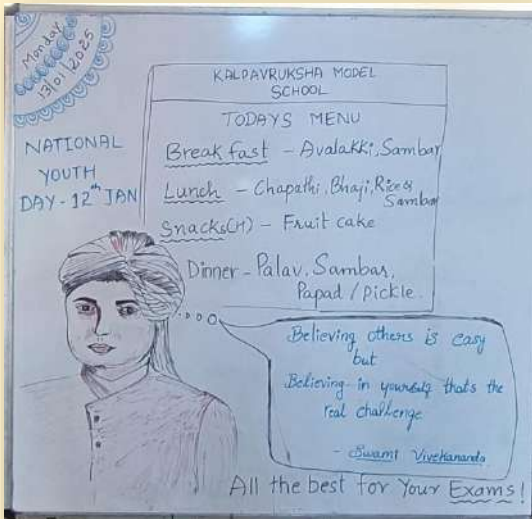 Monday
13/01/2025
KALPAVRUKSHA MODEL
SCHOOL
TODAYS MENU
Breakfast - Avalakki, Sambar
Lunch - Chapathi, Bhaji, Rice &
Sambar
Snacks(H) - Fruit cake
Dinner - Palav, Sambar,
Papad / Pickle.
NATIONAL
YOUTH
DAY - 12th JAN
Believing others is easy
but
Believing in yourself thats the
real challenge
- Swami Vivekananda
All the best for Your Exams!